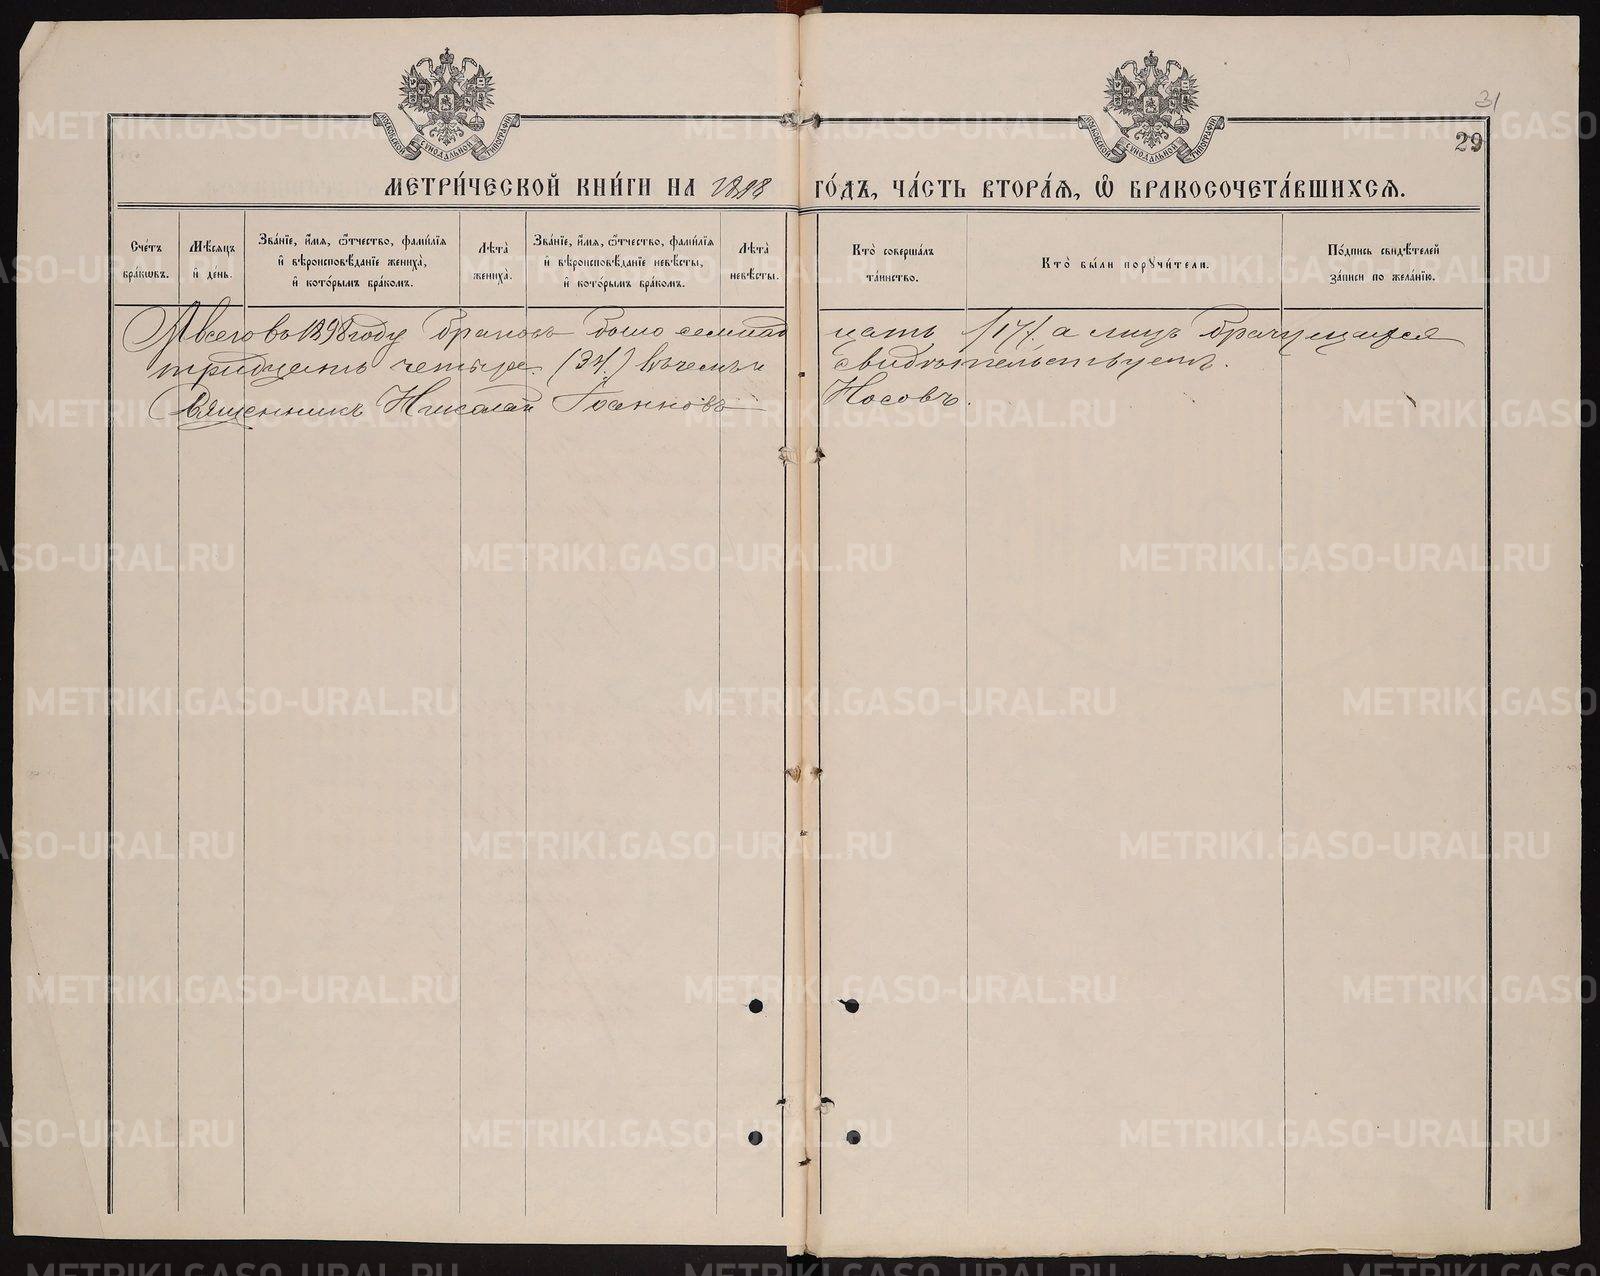 31
29
МОСКОВСКОЙ СѴНОДАЛЬНОЙ ТИПОГРАФІИ
МОСКОВСКОЙ СѴНОДАЛЬНОЙ ТИПОГРАФІИ
МЕТРИ́ЧЕСКОЙ КНИ́ГИ НА 1898 ГО́ДЪ, ЧА́СТЬ ВТОРА́Ѧ, Ѽ БРАКОСОЧЕТА́ВШИХСѦ.
Сче́тъ
бра́кѡвъ.
Мѣ́сѧцъ
и҆ де́нь.
Зва́нїе, и҆́мѧ, ѻ҆́тчество, фами́лїѧ
и҆ вѣроисповѣ́данїе жениха̀,
и҆ кото́рымъ бра́комъ.
Лѣ́та
жениха̀.
Зва́нїе, и҆́мѧ, ѻ҆́тчество, фами́лїѧ
и҆ вѣроисповѣ́данїе невѣ́сты,
и҆ кото́рымъ бра́комъ.
Лѣ́та
невѣ́сты.
Кто̀ соверша́лъ
та́инство.
Кто̀ бы́ли порꙋчи́тели.
По́дпись свидѣ́телей
за́писи по жела́нїю.
А всего въ 1898 году браковъ было семнад цать /17/. а лицъ брачущихся
тридцать четыре (34.) въ чемъ и свидѣтельствуетъ.
Священникъ Николай Іоанновъ Носовъ.
METRIKI.GASO-URAL.RU